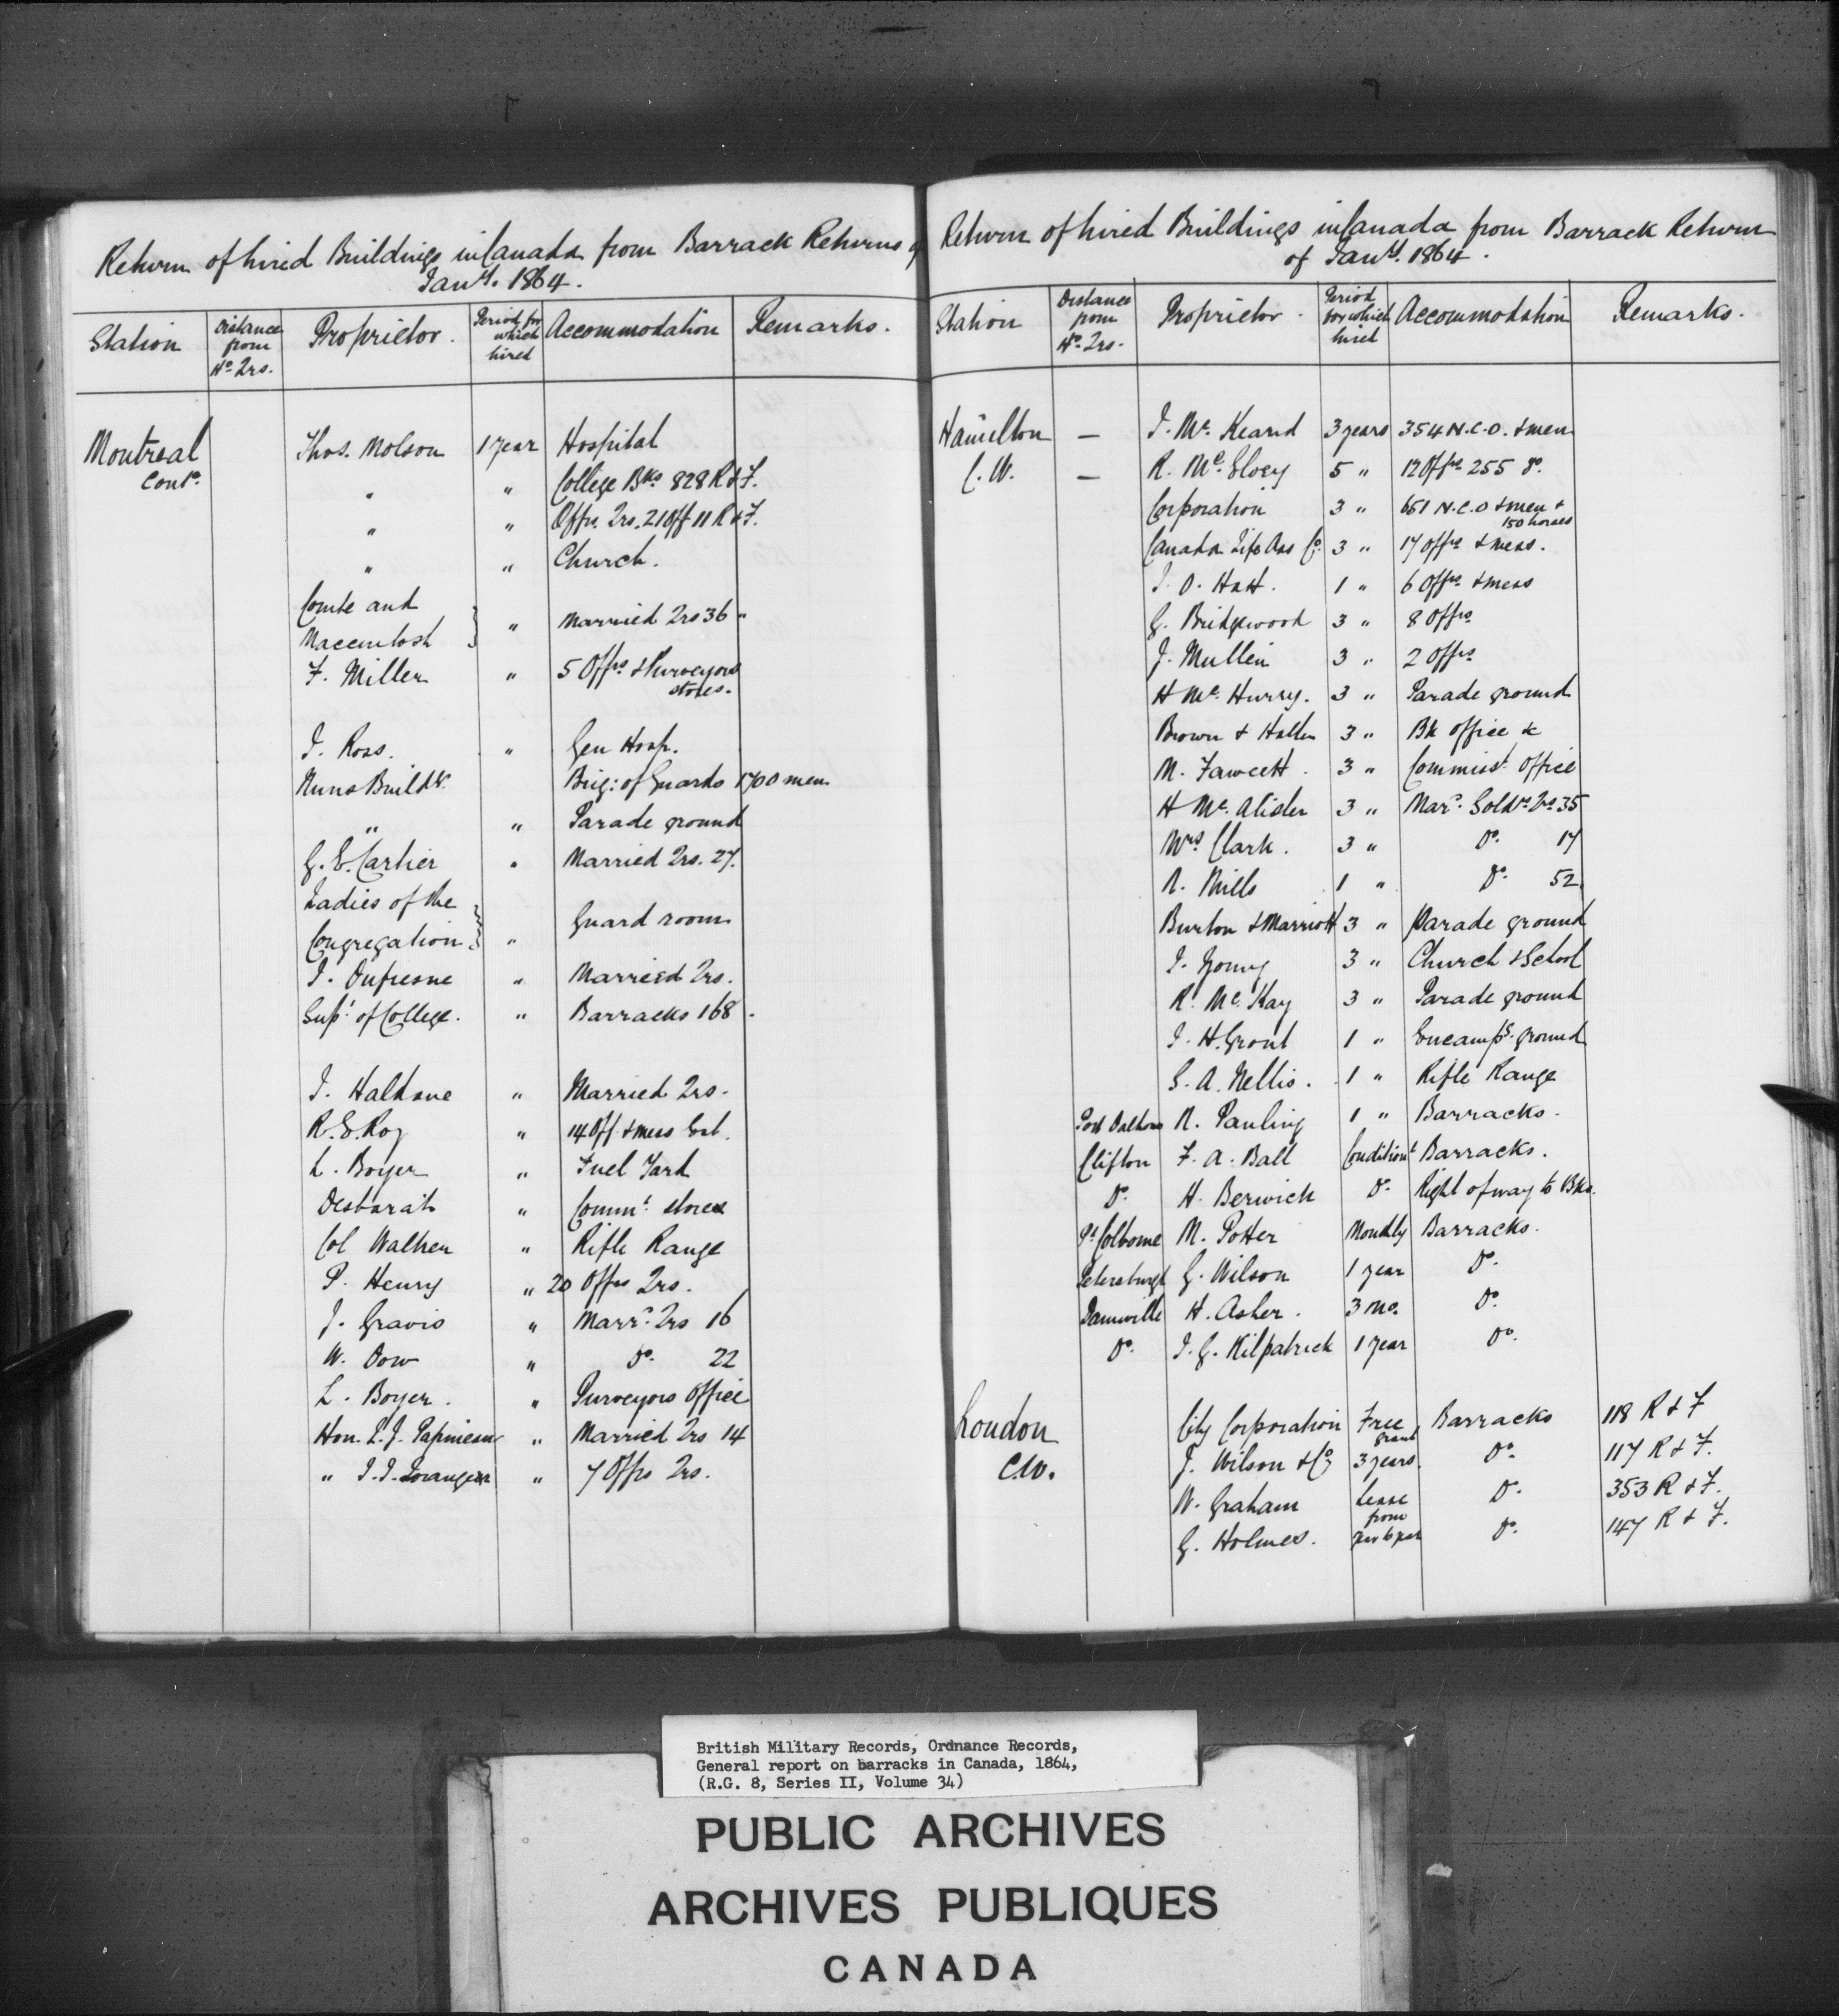 Return of hired Buildings in Canada from Barrack Returns of
Jany. 1864.
Station
Distance from Hd. Qrs.
Proprietor.
Period for which hired
Accommodation
Remarks.
Montreal Contd.
Thos. Molson 1 year Hospital
" " College Bks 828 R & F.
" " Offrs. Qrs. 21 Off 11 R & F.
" " Church.
Comte and
Maccintosh } " Married Qrs 36 "
F. Miller " 5 Offrs & Purveyors
stores.
J. Ross. " Gen Hosp.
Nuns Buildg. Brig: of Guards 1700 men
" " Parade ground
G. E. Cartier " Married Qrs. 27.
Ladies of the
Congregation } " Guard room
J. Dufresne " Married Qrs.
Supr. of College. " Barracks 168.
J. Haldane " Married Qrs.
R. E. Roy " 14 Off. & mess
L. Boyer " Fuel Yard
Desbarats " Commt. stores
Col Walker " Rifle Range
P. Henry " 20 Offrs Qrs.
J. Gravis " Marrd. Qrs 16
W. Dow " Do. 22
L. Boyer. " Purveyors Office
Hon. L. J. Papineau " Married Qrs 14
" T. J. Loranger " 7 Offrs Qrs.
Return of hired Buildings in Canada from Barrack Return
of Jany. 1864.
Station
Distance from Hd. Qrs.
Proprietor.
Period for which hired
Accommodation
Remarks.
Hamilton — J. Mc. Keand 3 years 354 N.C.O. & men
C.W. — R. Mc. Elroy 5 " 12 Offrs 255 Do.
Corporation 3 " 651 N.C.O & men &
150 horses
Canada Life Ass Co. 3 " 17 offrs & mess.
J. O. Hatt. 1 " 6 Offrs & mess
G. Bridgewood 3 " 8 Offrs
J. Mullin 3 " 2 Offrs
H Mc. Hurry. 3 " Parade ground
Brown & 3 " Bk office &c
M. Fawcett. 3 " Commisst. Office
H Mc. Alister 3 " Mard. Soldrs Qrs 35
Mrs Clark. 3 " Do. 17
N. Mills 1 " Do. 52.
Burton & Marriott 3 " Parade ground
J. Young 3 " Church & School
R. Mc. Kay 3 " Parade ground
J. H. Grant 1 " Encampg. ground
S. A. Nellis. 1 " Rifle Range
Port Dalhous N. Pauling 1 " Barracks.
Clifton F. A. Ball Conditionl Barracks.
Do. H. Berwick Do. Right of way to Bks.
Pt. Colborne M. Potter Monthly Barracks.
Petersburgh G. Wilson 1 year Do.
Dunnville H. Asher. 3 Mo. Do.
Do. J. G. Kilpatrick 1 year Do.
London City Corporation Free grant Barracks 118 R & F
C.W. J. Wilson & Co 3 years. Do. 117 R & F.
W. Graham Lease Do. 353 R & F.
G. Holmes. from yr to year Do. 147 R & F.
British Military Records, Ordnance Records,
General report on barracks in Canada, 1864,
(R.G. 8, Series II, Volume 34)
PUBLIC ARCHIVES
ARCHIVES PUBLIQUES
CANADA